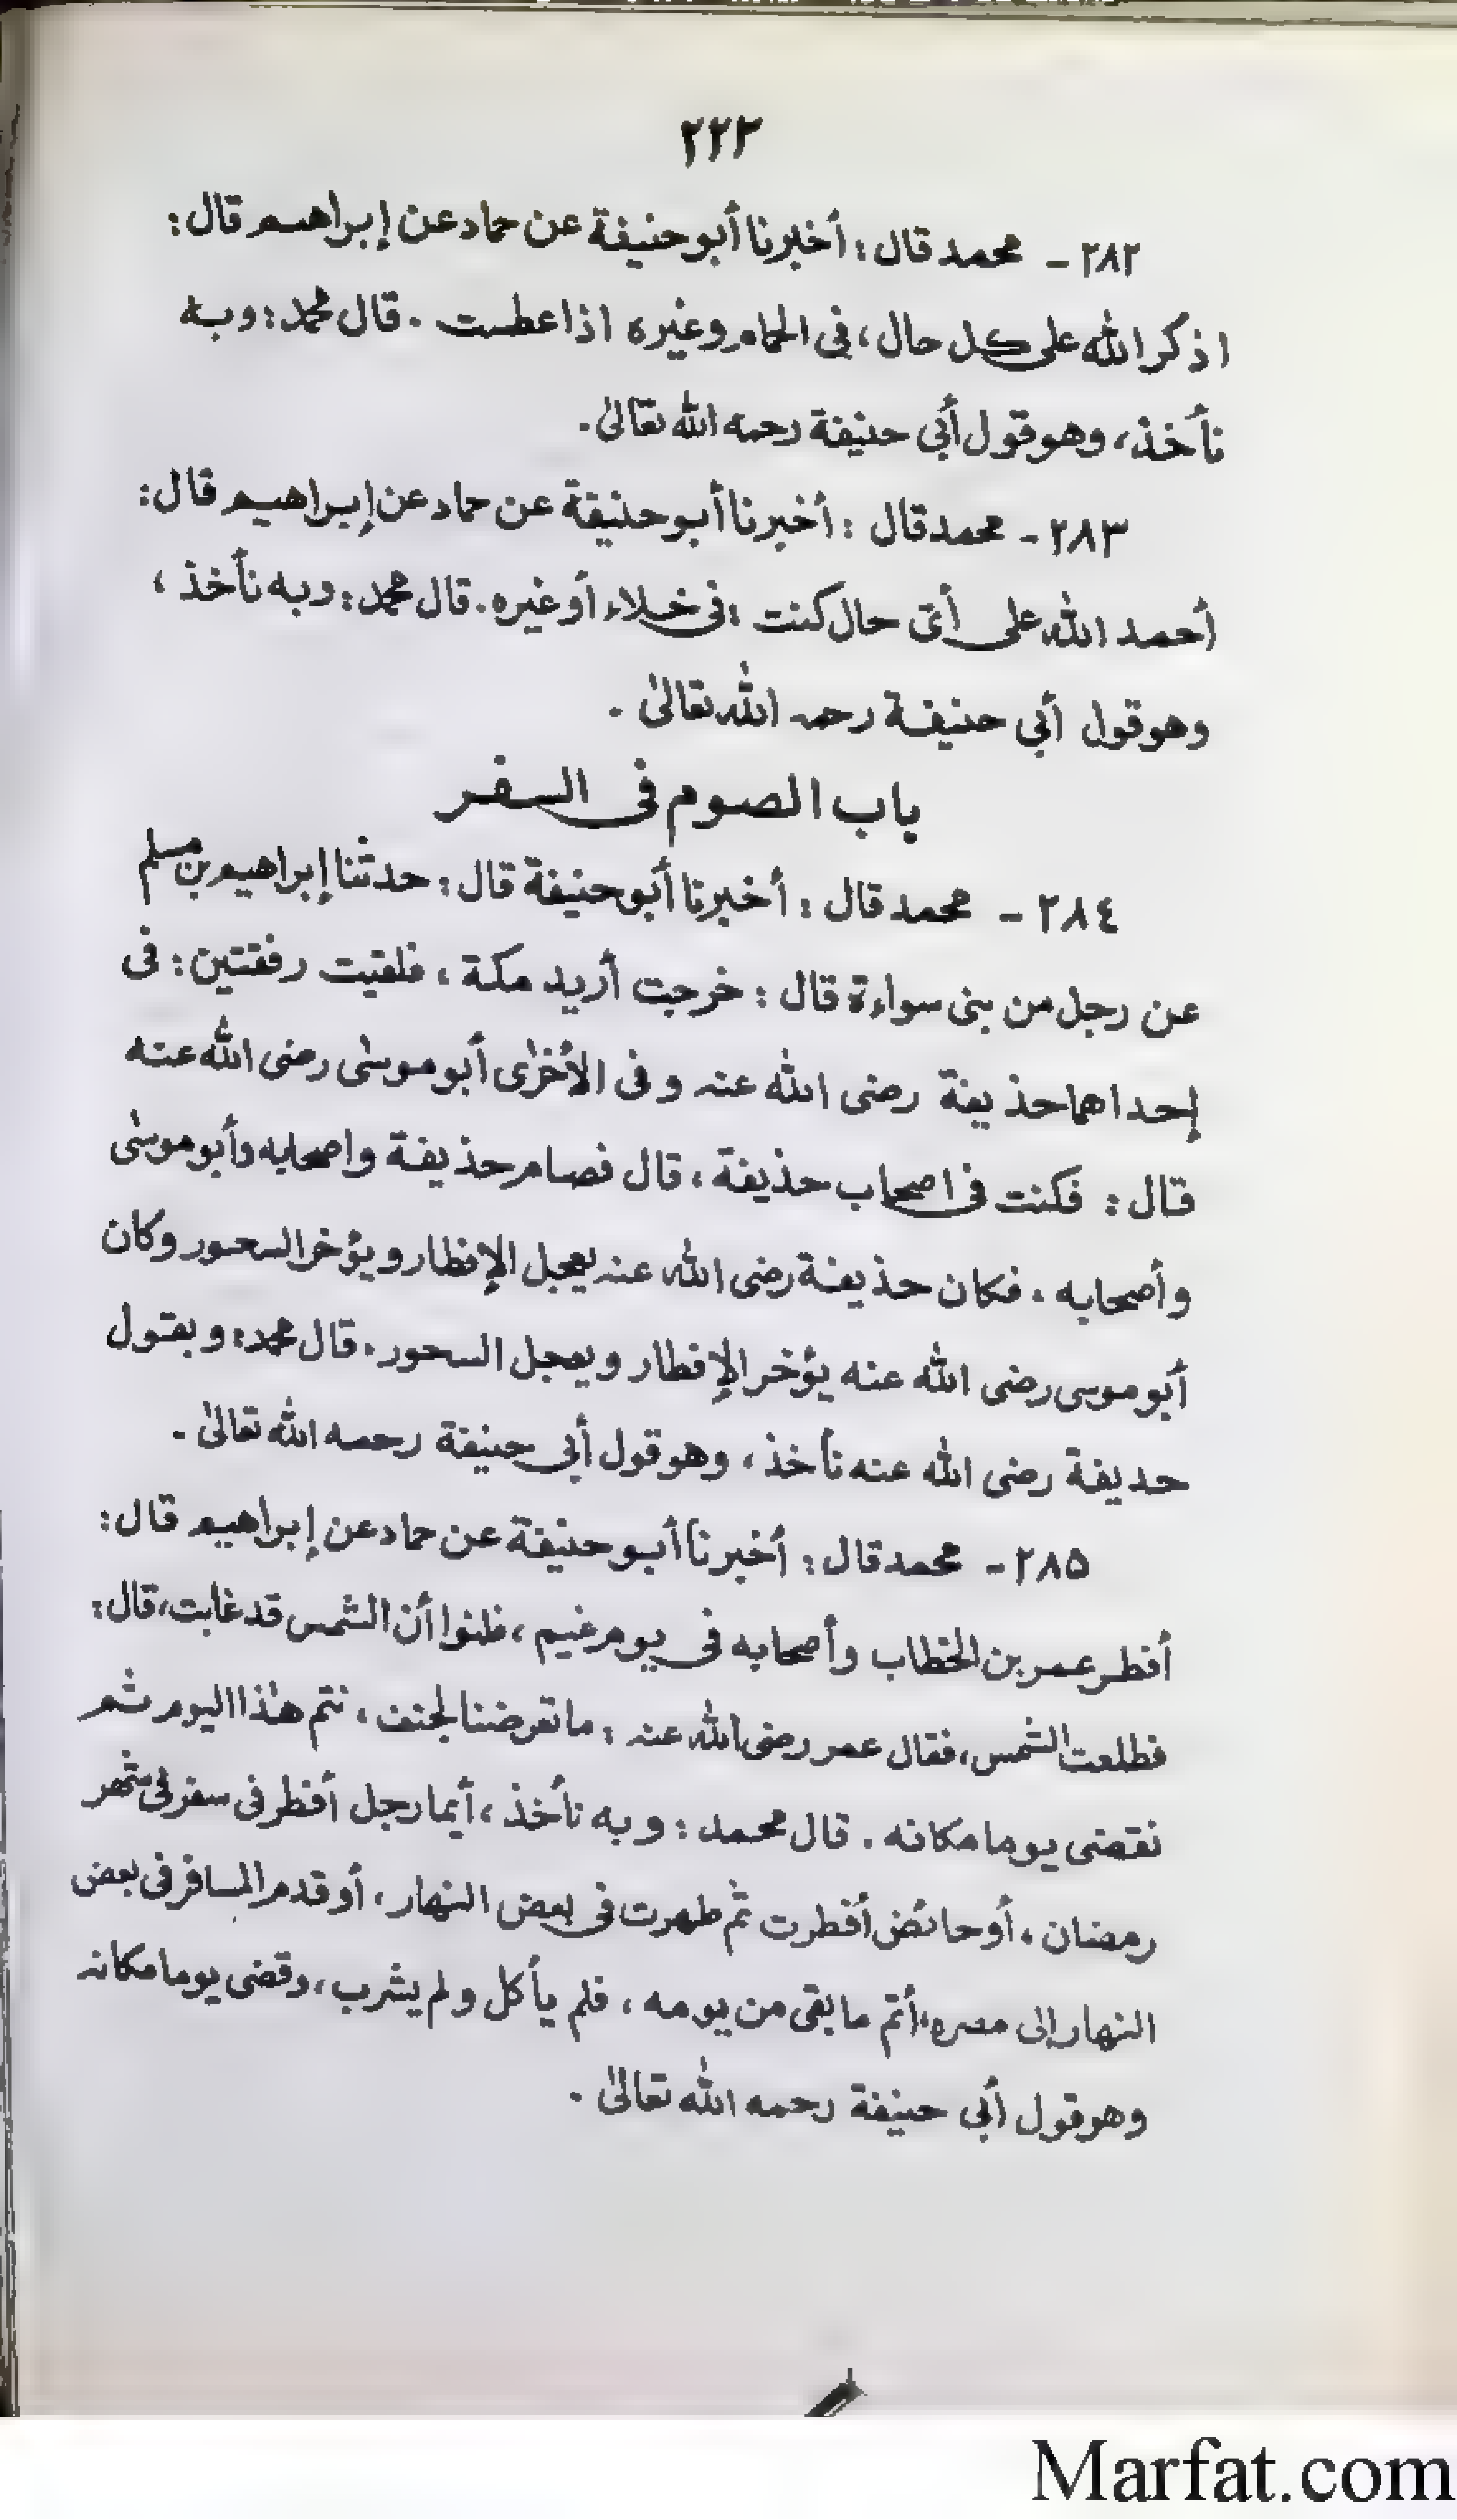 ٢٢٣
٢٨٢ - محمد قال: أخبرنا أبو حنيفة عن حماد عن إبراهيم قال:
اذكر الله على كل حال، في الحمام وغيره اذا عطست . قال محمد: وبه
نأخذ، وهو قول أبي حنيفة رحمه الله تعالىٰ.
٢٨٣ - محمد قال : أخبرنا أبو حنيفة عن حماد عن إبراهيم قال:
أحمد الله على أى حال كنت : فى خلاء أو غيره. قال محمد: وبه نأخذ ،
وهو قول أبي حنيفة رحمه الله تعالىٰ .
باب الصوم فى السفر
٢٨٤ - محمد قال : أخبرنا أبو حنيفة قال : حدثنا إبراهيم بن مسلم
عن رجل من بنى سواءة قال : خرجت أريد مكة ، فلقيت رفقتين : فى
إحداهما حذيفة رضى الله عنه و فى الأخرىٰ أبو موسىٰ رضى الله عنه
قال : فكنت فى اصحاب حذيفة ، قال فصام حذيفة واصحابه وأبو موسىٰ
وأصحابه ، فكان حذيفة رضى الله عنه يعجل الإفطار و يؤخر السحور وكان
أبو موسى رضى الله عنه يؤخر الإفطار ويعجل السحور . قال محمد : وبقول
حديفة رضى الله عنه نأخذ ، وهو قول أبى حنيفة رحمه الله تعالىٰ .
٢٨٥ - محمد قال : أخبرنا أبو حنيفة عن حماد عن إبراهيم قال :
أفطر عمر بن الخطاب وأصحابه فى يوم غيم ، ظنوا أن الشمس قد غابت، قال :
فطلعت الشمس، فقال عمر رضى الله عنه : ما تعرضنا لجنف ، نتم هٰذا اليوم ثم
نقضى يوما مكانه . قال محمد : وبه نأخذ ، أيما رجل أفطر فى سفر فى شهر
رمضان ، أو حائض أفطرت ثم طهرت فى بعض النهار ، أو قدم المسافر فى بعض
النهار إلى مصره، أتم ما بقى من يومه ، فلم يأكل ولم يشرب، وقضى يوما مكانه
وهو قول أبى حنيفة رحمه الله تعالىٰ .
Marfat.com